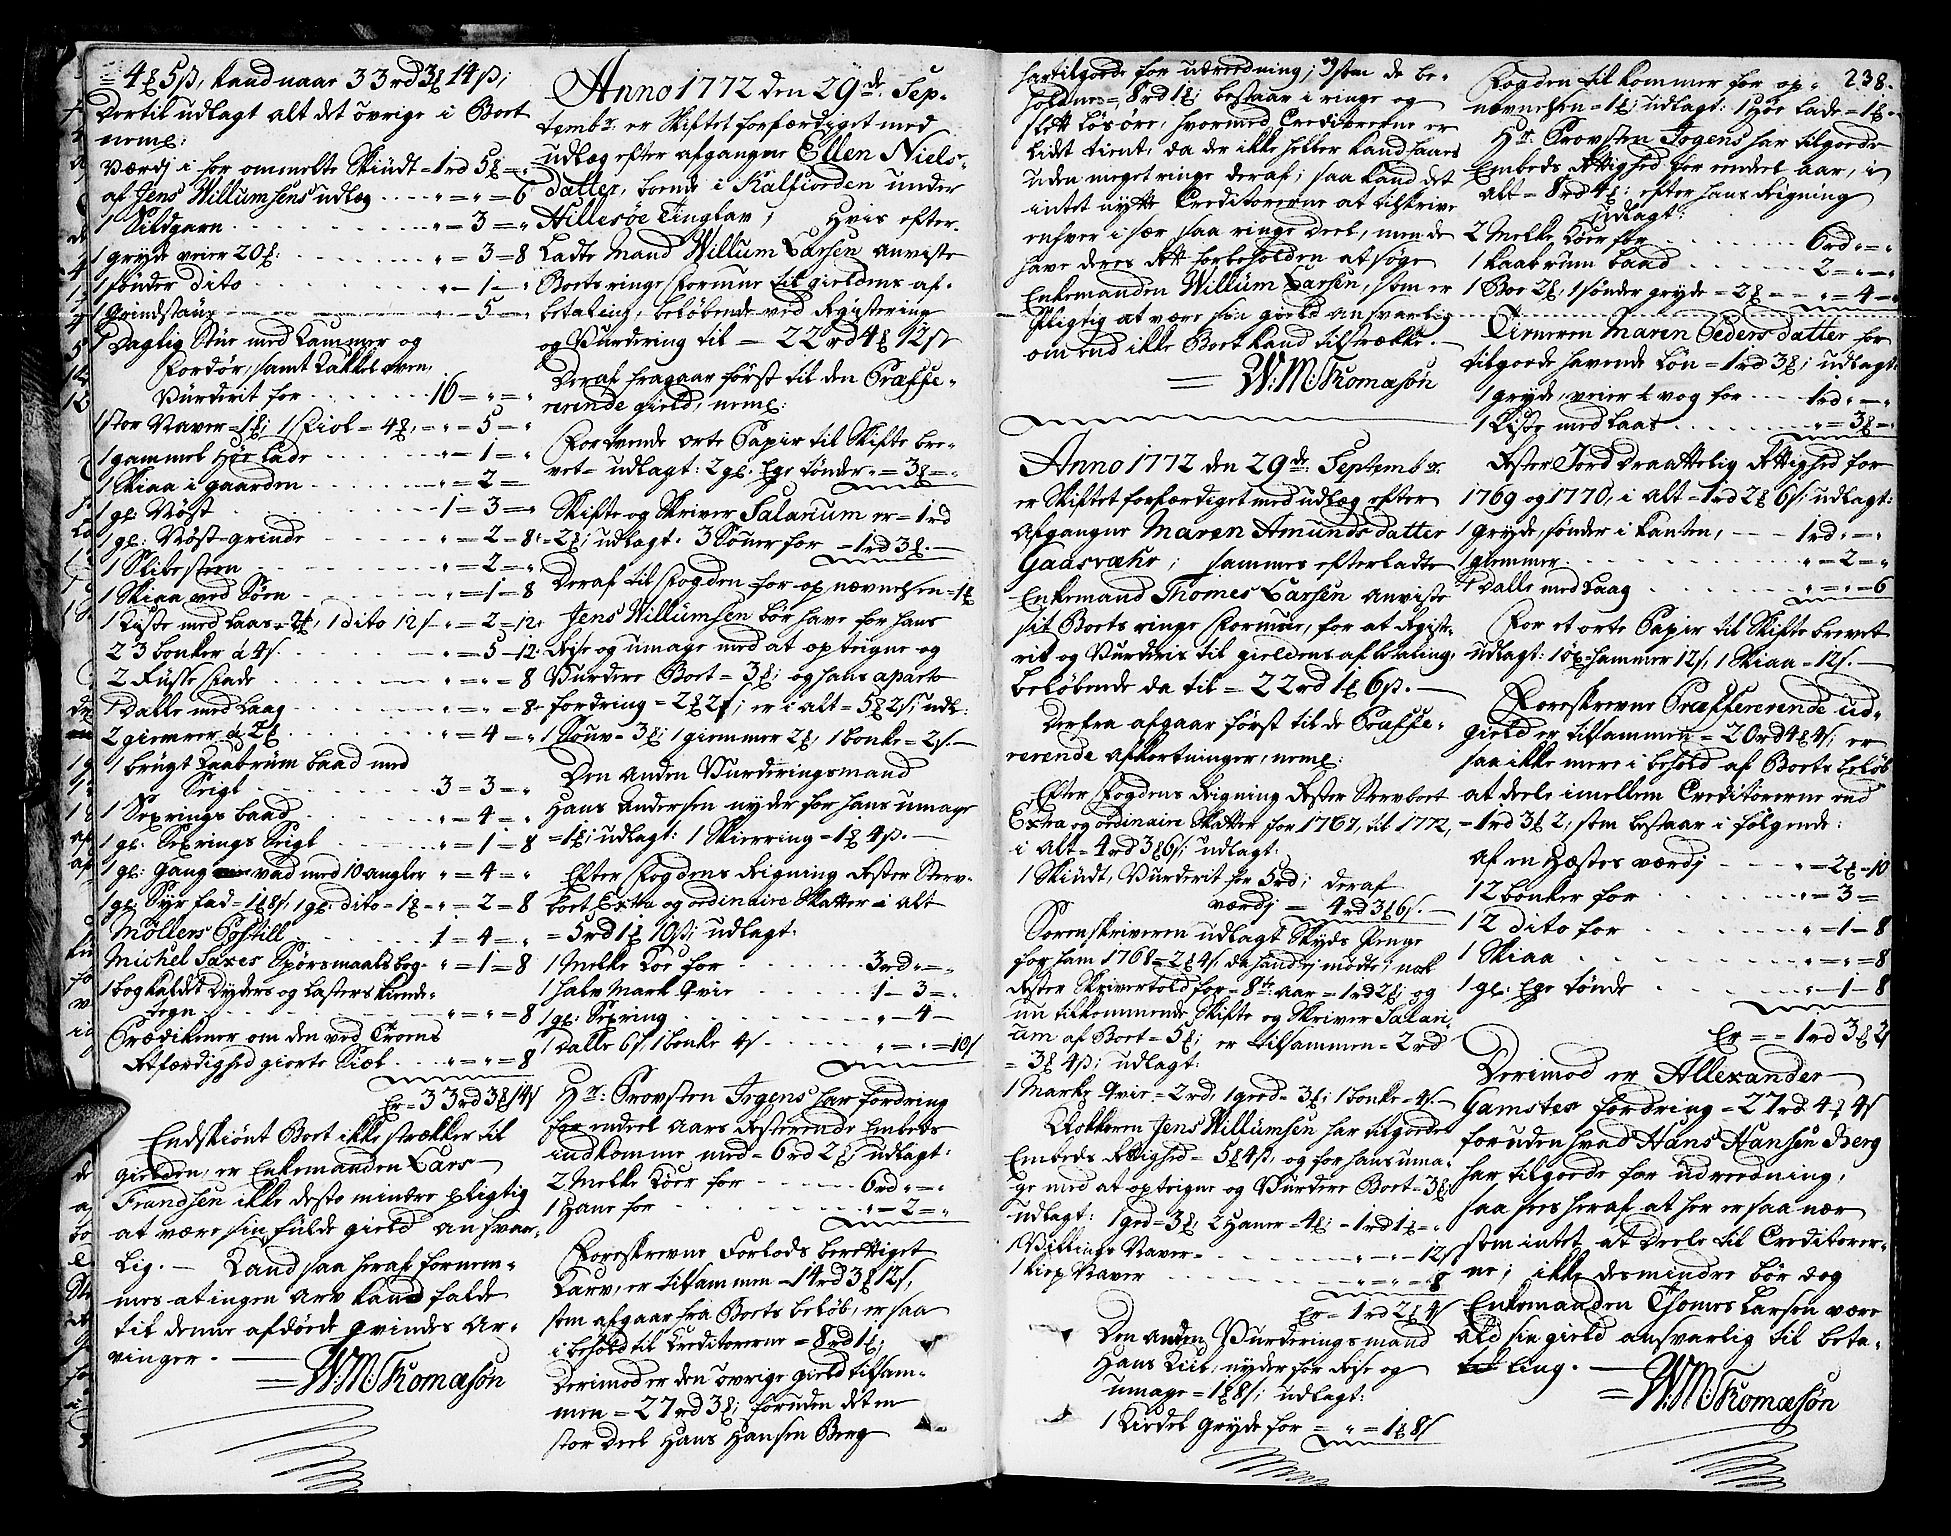 = 4ʒ 5ß, kand naar 33rd 3ʒ 14ß;
dertil udlagt alt det øvrige i Boet
neml:
værdj i for ommelte Skiudt = 1rd 5ʒ = "
af Jens Willumsens udlæg .... " = " = 6
1 Sildgarn ........ " = 3 = "
1 gryde veier 20 ...... " = 3 = 8
1 sønder dito ........ " = 1 = "
1 Grindstaur ........ " = 5 = "
1 Daglig Stue med Kammer og
Fordør, samt Kakkeloven,
Vurderit for ....... 16 = " = "
1 stor Naver = 1ʒ; 1 fiol = 4ʒ, " = 5 = "
1 gammel Høe lade ..... " = 1 = "
1 Skiaa i gaarden ...... " = 2 =
1 gl: Nøst ........ 1 = 3 = "
1 gl: Nøst-grinde ...... " = 2 = 8
1 Slibesteen ........ " = 2 = "
1 Skiaa ved Søen ...... " = 1 = 8
1 Kiste med Laas = 2ʒ, 1 dito 12ß " = 2 = 12
23 bonker á 4ß ....... " = 5 = 12
2 Fusse fade ........ " = " = 8
1 Dalle med Laag ...... " = " = 8
2 giemmer á 2ʒ ....... " = 4 = "
1 brugt Kaabrüm baad med
Seigl ........ 3 = 3 = "
1 Sexrings baad ....... " = 4 = "
1 gl: Sexrings Seigl ..... " = 1 = 8
1 gl: Gang vad med 10 angler " = 4 = "
1 gl: Syr fad = 1ʒ 8ß, 1 gl: dito = 1ʒ " = 2 = 8
Møllers Postill ...... 1 = 4 = "
Michel Saxes Spørsmaals bog " = 1 = 8
1 bog kaldet Dyders og Lasters kiende-
tegn ........ " = " = 8
Prædikener om den ved Troens
Retfærdighed giorte Siæl ... " = " = 8
Er = 33rd 3ʒ 14ß
Endskiønt Boet ikke strækker til
gielden, er Enkemanden Lars
Frandsen ikke desto mindre pligtig
at være sin fulde gield ansvar-
lig. — Kand saa heraf fornem-
mes at ingen arv kand falde
til denne afdøde qvindes Ar-
vinger. —
W: M: Thomæsøn
Anno 1772 den 29de Sep-
tembr. er Skiftet forfærdiget med
udlæg efter afgangne Ellen Niels-
datter, boende i Kalfiorden under
Hillesøe Tinglav; Hvis efter-
ladte Mand Willum Larsen anviste
Boets ringe Formue til gieldens af-
betaling, beløbende ved Registering
og Vurdering til = 22rd 4ʒ 12ß
Deraf fragaar først til den Præffe-
rerende gield, neml:
Fordrende orte Papir til Skifte bre-
vet = udlagt: 2 gl. Ege tønder " = 3ʒ = "
Skifte og Skriver Salarium er = 1rd
= 2ʒ; udlagt. 3 Souer for = 1rd 3ʒ. —
Deraf til Fogden for op nævnelsen = 1ʒ
Jens Willumsen bør have for hans
Reise og umage med at opteigne og
Vurdere Boet = 3ʒ; og hans aparte
fordring = 2ʒ 2ß; er i alt = 5ʒ 2ß; udl:
1 Souv = 3ʒ; 1 giemmer 2ʒ, 1 bonke = 2ß. —
Den anden Vurderingsmand
Hans Andersen nyder for hans umage
= 1ʒ; udlagt: 1 Skierring = 1ʒ 4ß. —
Efter Fogdens Rigning Rester Sterv-
boet Extra og ordinaire Skatter i alt
= 5rd 1ʒ 10ß; udlagt:
1 Melke Koe for ...... 3rd " = "
1 halv Mark Qvie ...... 1 = 3 = "
1 gl: Sexring ....... " = 4 =
1 Dalle 6ß, 1 bonke 4ß ..... " = " = 10ß
Hr: Provsten Jrgens har fordring
for endeel Aars Resterende Embeds
indkomme med = 6rd 2ʒ; udlagt:
2 Melke Køer for ...... 6rd " = "
1 Hane for ........ " = 2 = "
Foreskrevne Forlods berettiget
Karv, er tilsammen = 14rd 3ʒ 12ß,
som afgaar fra Boets beløb, er saa
i behold til Creditorerne = 8rd 1ʒ;
Derimod er den øvrige gield tilsam-
men = 27rd 3ʒ; foruden det en
stor deel Hans Hansen Berg
har tilgode for udreedning; som de be-
holdnes = 8rd 1ʒ; bestaar i ringe og
slett løsøre, hvormed Creditorerne er
lidt tient, da de ikke heller kand haves
uden meget ringe deraf; saa kand det
intet nytte Creditorerne at tilskrive
enhver i sær saa ringe deel, men de
have deres Ret forbeholden at søge
Enkemanden Willum Larsen, som er
pligtig at være sin gield ansvarlig
om end ikke Boet kand tilstrække. —
= W: M: Thomæsøn
Anno 1772 den 29de Septembr.
er Skiftet forfærdiget med udlæg efter
Afgangne Maren Amunds datter
Gaasvahr; sammes efterladte
Enkemand Thomes Larsen anviste
sit Boets ringe Formue, for at Registe-
rit og Vurderis til gieldens afbetaling,
beløbende da til = 22rd 1ʒ 6ß. —
Derfra afgaar først til de Præffe-
rerende afkortninger, neml:
Efter Fogdens Rigning Rester Stervboet
Extra og ordinaire Skatter for 1767, til 1772,
i alt = 4rd 3ʒ 6ß; udlagt:
1 Skiudt, Vurderit for 5rd; deraf
værdj = 4rd 3ʒ 6ß. —
Sorenskriveren udlagt Skyds Penge
for ham 1768 = 2ʒ 4ß da hand ej mødte; nok
Rester Skrivertold for = 8te Aar = 1rd 2ʒ, og
nu tilkommende Skifte og Skriver Salari-
um af Boet = 5ʒ; er tilsammen = 2rd
= 3ʒ 4ß; udlagt:
1 Marke Qvie = 2rd, 1 geed = 3ʒ; 1 bonke = 4ß. —
Klokkeren Jens Willumsen har tilgode
Embeds Rettighed = 5ʒ 4ß, og for hans uma-
ge med at opteigne og Vurdere Boet = 3ʒ;
udlagt: 1 ged = 3ʒ, 2 Haner = 4ʒ; = 1rd 1ʒ = "
1 Naver ........ " = " = 12ß
1 Naver ........ " = " = 8
Er = 1rd 2ʒ 4ß
Den anden Vurderingsmand
Hans Kiil, nyder for Reise og
umage = 1ʒ 8ß; udlagt:
1 Kiedel Gryde for = " = 1ʒ 8ß
238.
Fogden til kommer for op-
nævnelsen = 1ʒ; udlagt: 1 Høe lade = 1ʒ. —
Hr: Provsten Jrgens har tilgode
Embeds Rettighed for endeel aar, i
alt = 8rd 4ʒ; efter hans Rigning
udlagt:
2 Melke Køer for ...... 6rd " = "
1 Kaabrüm baad ....... 2 = " = "
1 Boe 2ʒ, 1 sønder gryde = 2ʒ = " = 4 = "
Tieneren Maren Peders datter for
tilgode havende Løn = 1rd 3ʒ; udlagt:
1 gryde, veier ½ vog for ... 1rd " = "
1 Kiste med Laas ...... " = 3ʒ = "
Rester Jord draattelig Rettighed for
1769 og 1770, i alt = 1rd 2ʒ 6ß; udlagt:
1 gryde, sønder i kanten, ... 1rd " = "
1 giemmer ........ " = 2 = "
1 Dalle med Laag ...... " = " = 6
For et orte Papir til Skifte brevet
udlagt: 1 øx-hammer 12ß, 1 Skiaa = 12ß. —
Foreskrevne Præffererende ud-
gield er tilsammen = 20rd 4ʒ 4ß; er
saa ikke mere i behold af Boets beløb
at deele imellem Creditorerne end
= 1rd 3ʒ 2; som bestaar i følgende:
af en Hæstes værdj .... " = 2ʒ = 10
12 bonker for ....... " = 3 =
12 dito for ........ " = 1 = 8
1 Skiaa ......... " = " = 8
1 gl: Ege tønde ...... " = 1 = 8
Er = = 1rd 3ʒ 2ß
Derimod er Allexander
Gamsten fordring = 27rd 4ʒ 4ß
foruden hvad Hans Hansen Berg
har tilgode for udreedning,
saa sees heraf at her er saa nær
som intet at deele til Creditorer-
ne; ikke desmindre bør dog
Enkemanden Thomes Larsen være
ald sin gield ansvarlig til beta-
ling. —
= W: M: Thomæsøn